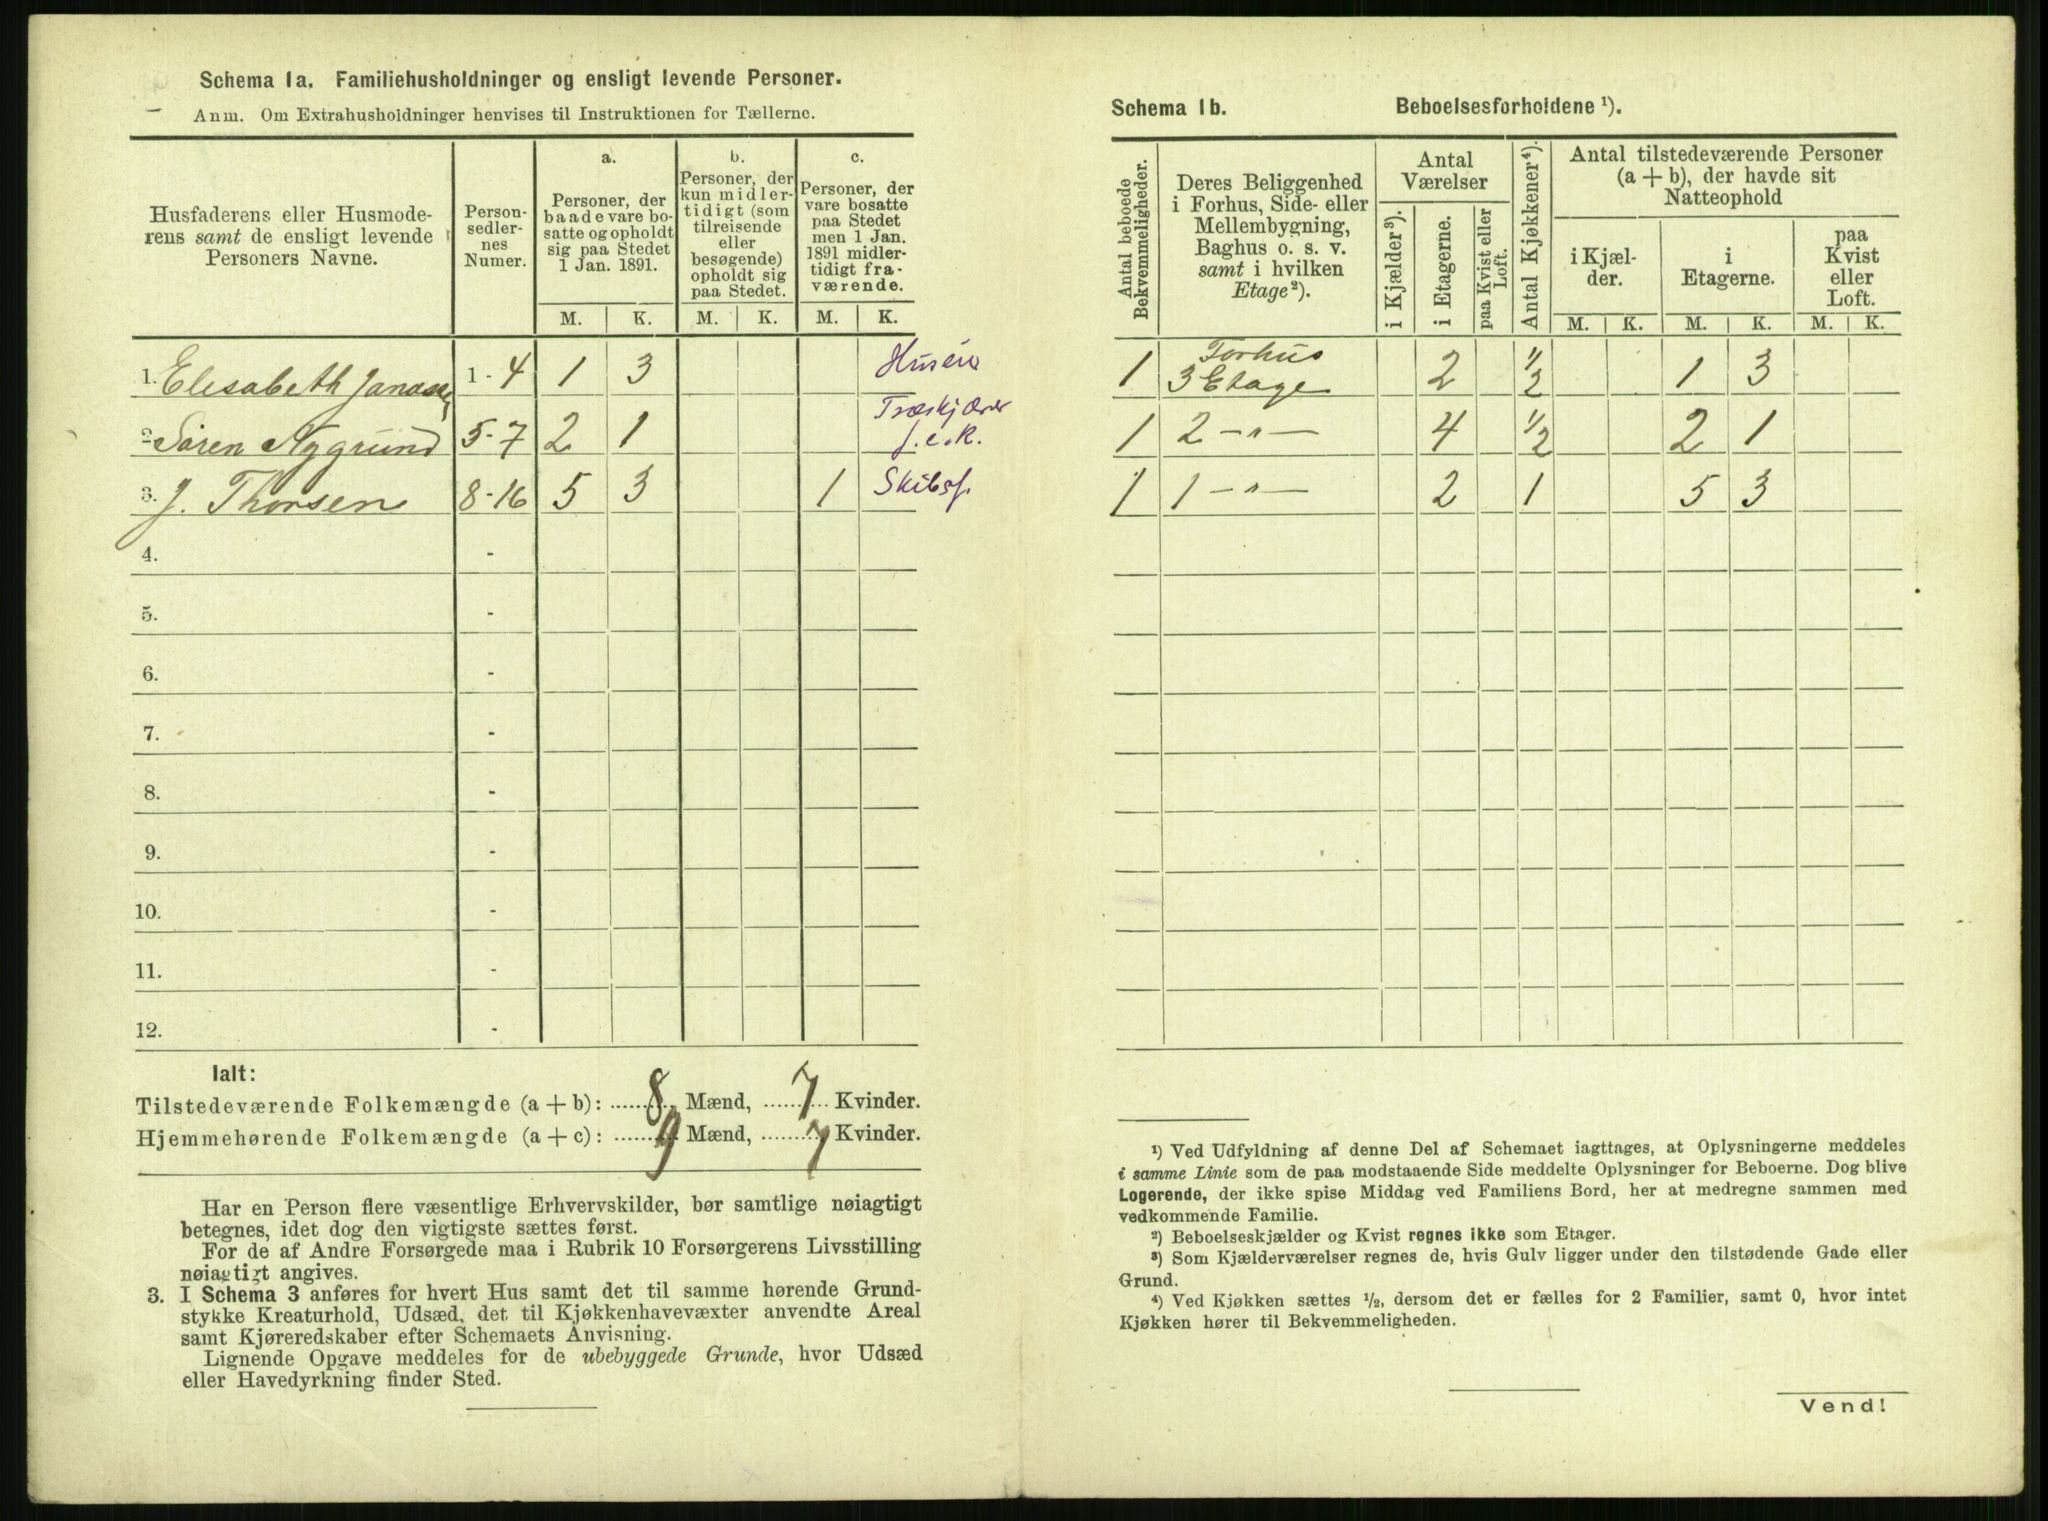 Schema 1a. Familiehusholdninger og ensligt levende Personer.
Anm. Om Extrahusholdninger henvises til Instruktionen for Tællerne.
Husfaderens eller Husmode-
rens samt de ensligt levende
Personers Navne.
Person-
sedler-
nes
Numer.
a.
Personer, der
baade vare bo-
satte og opholdt
sig paa Stedet
1 Jan. 1891.
b.
Personer, der
kun midler-
tidigt (som
tilreisende
eller
besøgende)
opholdt sig
paa Stedet.
c.
Personer, der
vare bosatte
paa Stedet
men 1 Jan.
1891 midler-
tidigt fra-
værende.
M. K. M. K. M. K.
1. Elisabeth 1 - 4 1 3
2 Søren Nygrund 5-7 2 1
Træskjærer
3. J. Thorsen 8-16 5 3 1 Skibsf.
4. -
5. -
6. -
7. -
8. -
9. -
10. -
11. -
12. -
Ialt:
Tilstedeværende Folkemængde (a + b): 8 Mænd, 7 Kvinder.
Hjemmehørende Folkemængde (a + c): 9 Mænd, 7 Kvinder.
Har en Person flere væsentlige Erhvervskilder, bør samtlige nøiagtigt
betegnes, idet dog den vigtigste sættes først.
For de af Andre Forsørgede maa i Rubrik 10 Forsørgerens Livsstilling
nøiagtigt angives.
3. I Schema 3 anføres for hvert Hus samt det til samme hørende Grund-
stykke Kreaturhold, Udsæd, det til Kjøkkenhavevæxter anvendte Areal
samt Kjøreredskaber efter Schemaets Anvisning.
Lignende Opgave meddeles for de ubebyggede Grunde, hvor Udsæd
eller Havedyrkning finder Sted.
Schema 1b. Beboelsesforholdene ¹).
Antal beboede
Bekvemmeligheder.
Deres Beliggenhed
i Forhus, Side- eller
Mellembygning,
Baghus o. s. v.
samt i hvilken
Etage²).
Antal
Værelser
i Kjælder³).
i Etagerne.
paa Kvist eller
Loft.
Antal Kjøkkener⁴).
Antal tilstedeværende Personer
(a + b), der havde sit
Natteophold
i Kjæl-
der.
i
Etagerne.
paa
Kvist
eller
Loft.
M. K. M. K. M. K.
1 Forhus
3 Etage 2 1/2 1 3
1 2 -"- 4 1/2 2 1
1 1 -"- 2 1 5 3
¹) Ved Udfyldning af denne Del af Schemaet iagttages, at Oplysningerne meddeles
i samme Linie som de paa modstaaende Side meddelte Oplysninger for Beboerne. Dog blive
Logerende, der ikke spise Middag ved Familiens Bord, her at medregne sammen med
vedkommende Familie.
²) Beboelseskjælder og Kvist regnes ikke som Etager.
³) Som Kjælderværelser regnes de, hvis Gulv ligger under den tilstødende Gade eller
Grund.
⁴) Ved Kjøkken sættes ½, dersom det er fælles for 2 Familier, samt 0, hvor intet
Kjøkken hører til Bekvemmeligheden.
Vend!